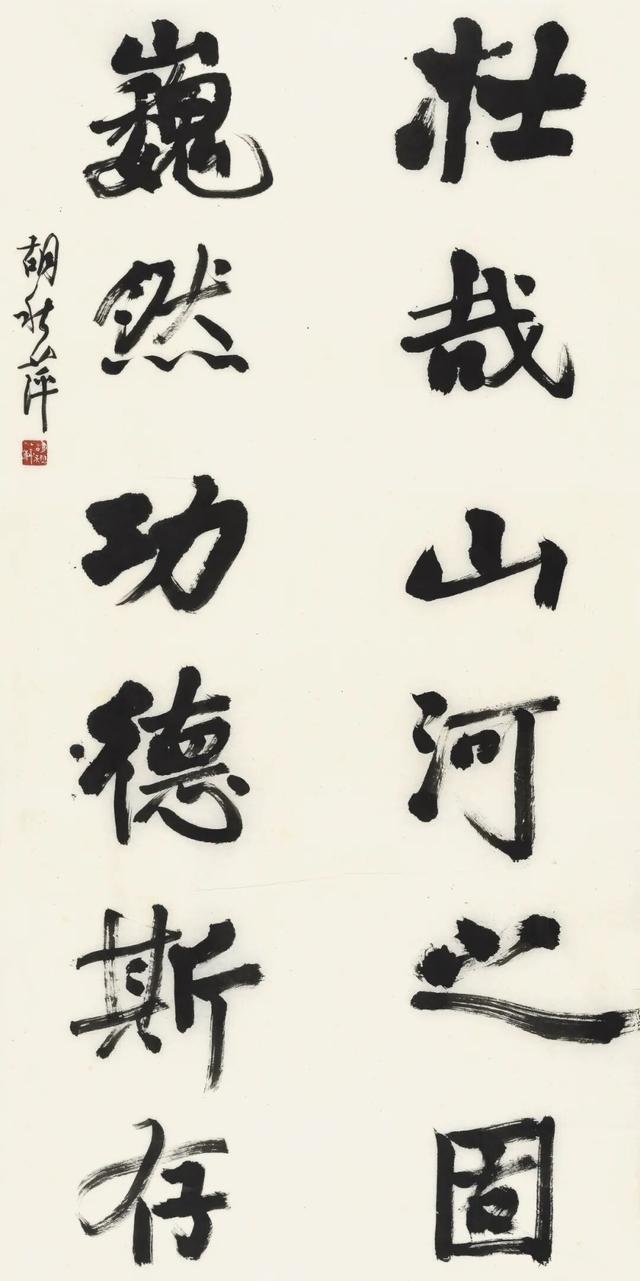 壮哉山河之固
巍然功德斯存
胡秋萍